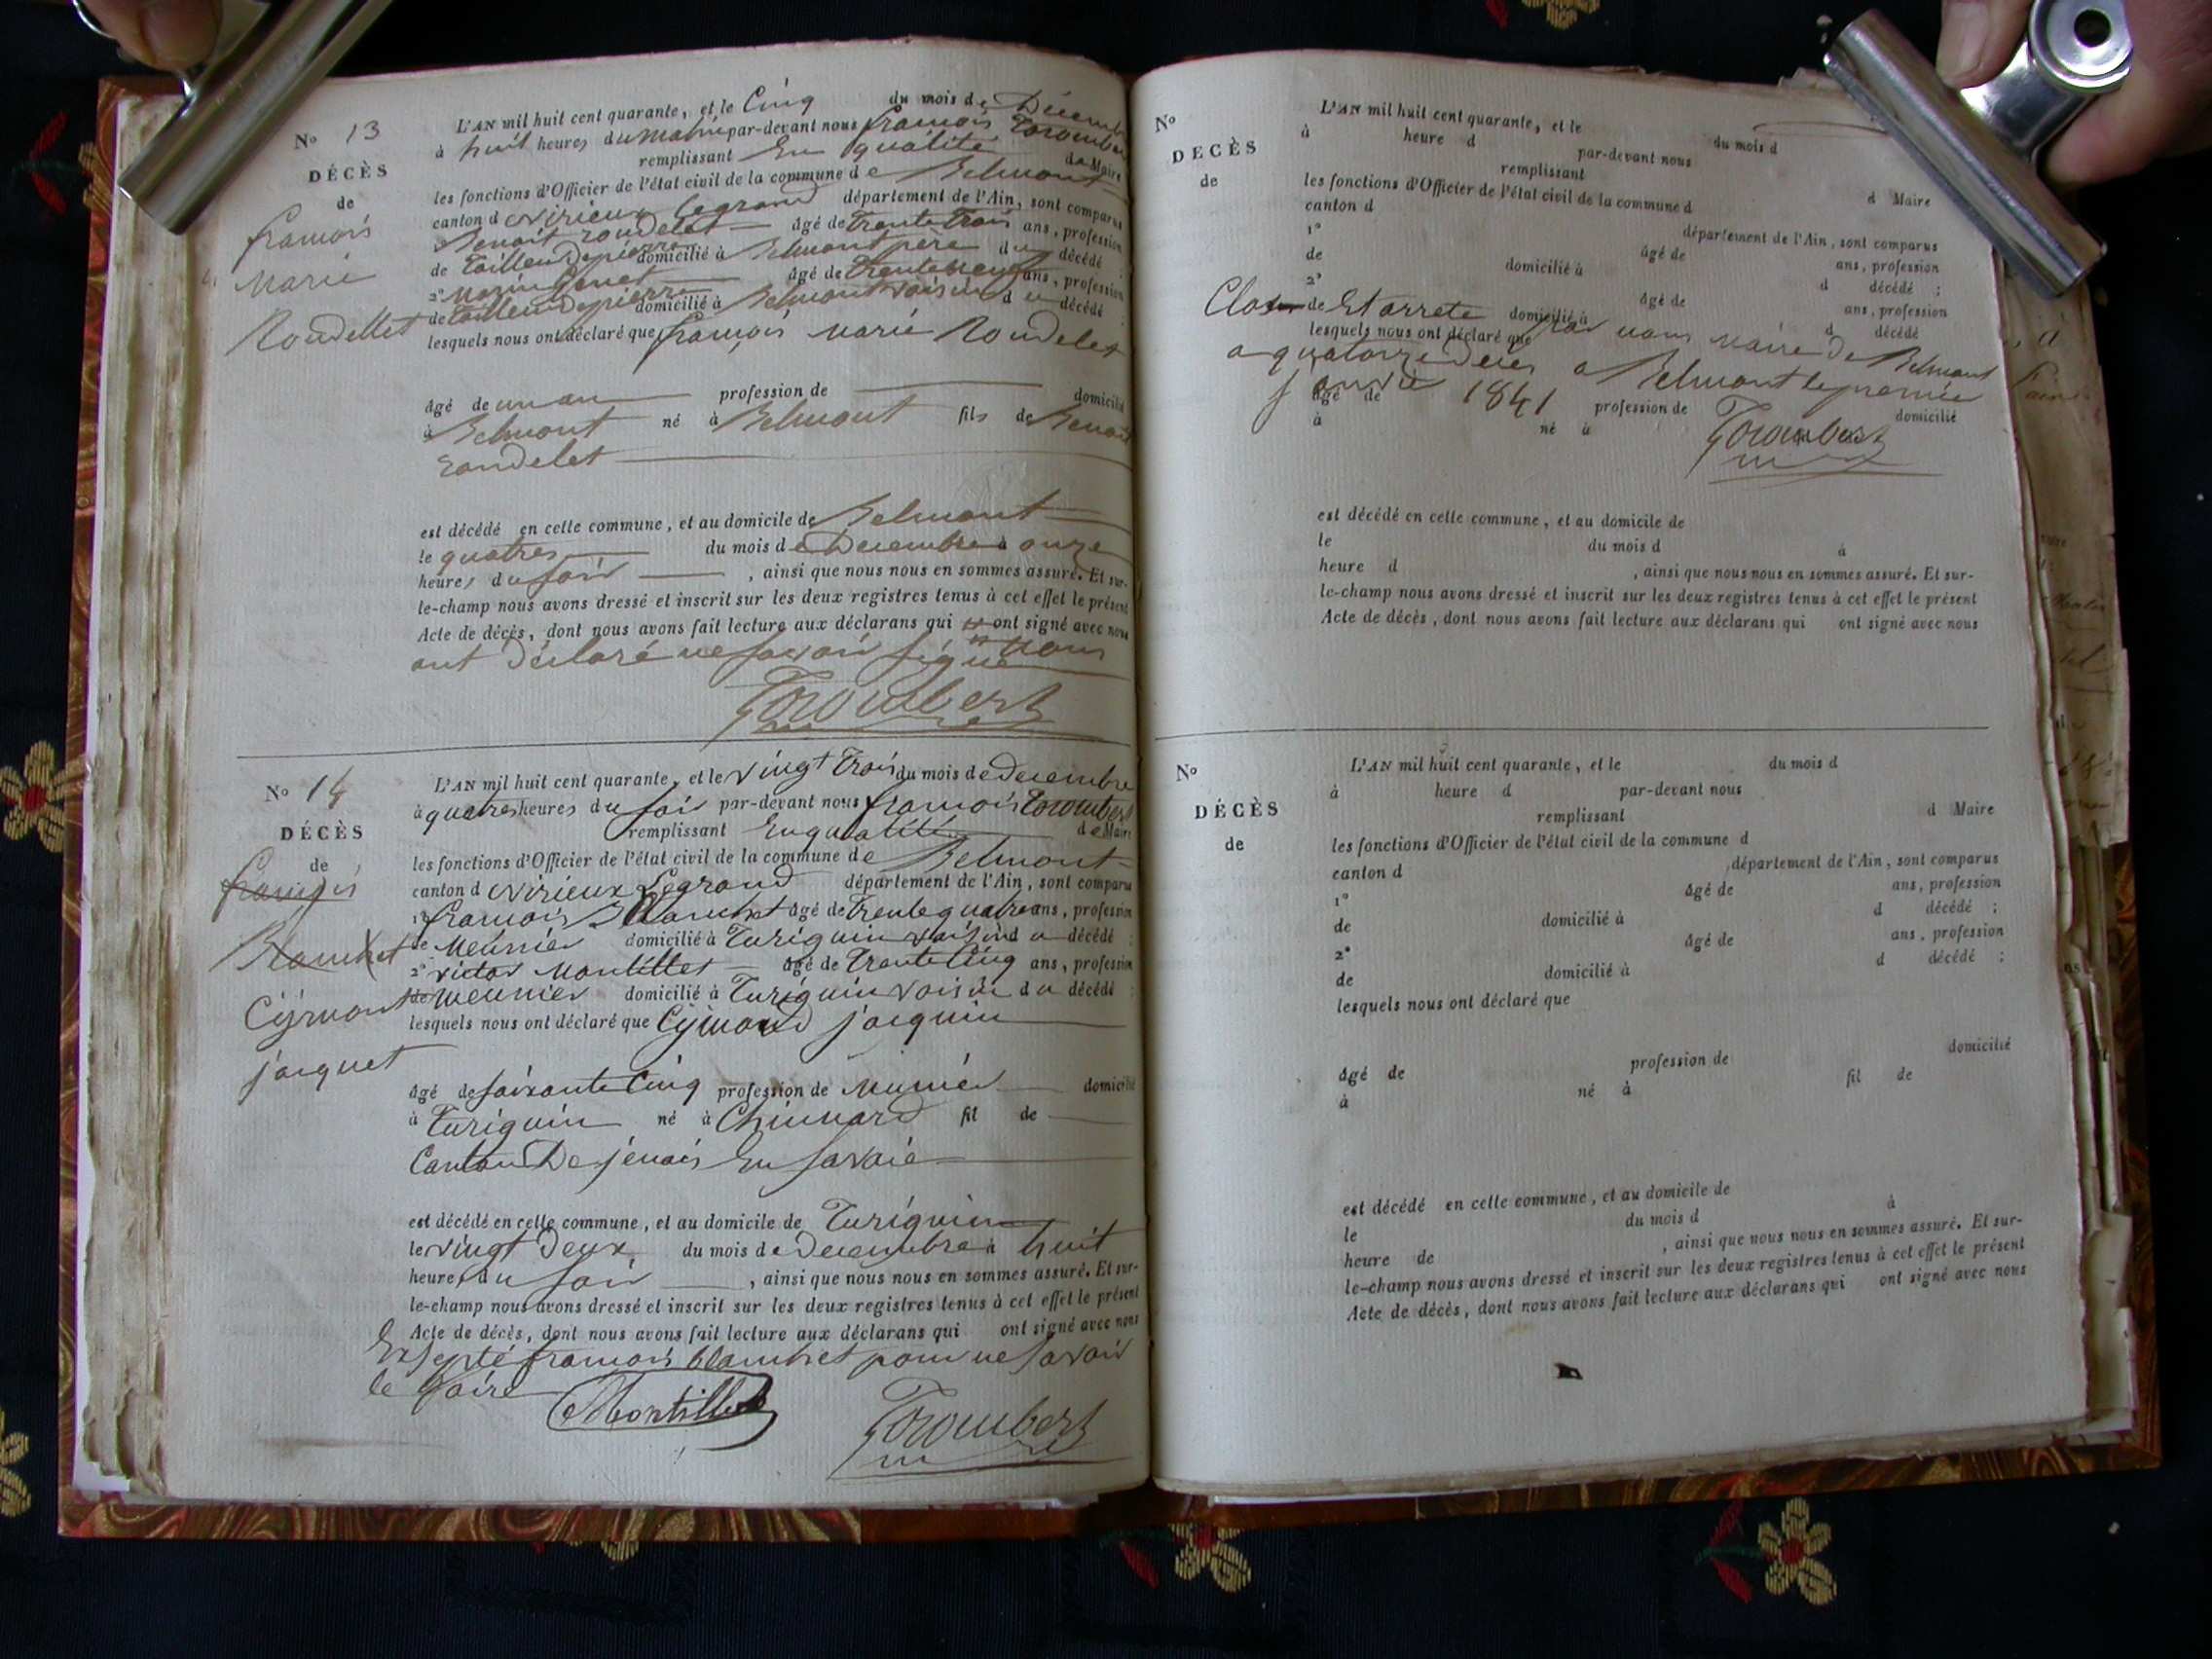 N° 13
DÉCÈS
de
françois
Marie
Roudellet
L'AN mil huit cent quarante, et le Cinq du mois de Décembre
à huit heures du matin par-devant nous françois Torombert
remplissant En qualité de Maire
les fonctions d'Officier de l'état civil de la commune de Belmont
canton d Virieux Legrand département de l'Ain, sont comparus
Benoit roudelet âgé de trente trois ans, profession
de tailleur de pierre domicilié à Belmont père du décédé ;
2° âgé de trente neuf ans, profession
de tailleur de pierre domicilié à Belmont voisin d u décédé
lesquels nous ont déclaré que françois Marie Roudelet
âgé de un an profession de domicilié
à Belmont né à Belmont fils de Benoit
roudelet
est décédé en cette commune, et au domicile de Belmont
le quatres du mois de Décembre à onze
heures du soir , ainsi que nous nous en sommes assuré. Et sur-
le-champ nous avons dressé et inscrit sur les deux registres tenus à cet effet le présent
Acte de décès, dont nous avons fait lecture aux déclarans qui ont signé avec nous
ont déclaré ne savoir signé
Torombert
N° 14
DÉCÈS
de
françois
Blanchet
Cÿmont
jacquet
L'AN mil huit cent quarante, et le vingt trois du mois de decembre
à quatres heures du soir par-devant nous françois Torombert
remplissant En qualité de Maire
les fonctions d'Officier de l'état civil de la commune de Belmont
canton d Virieux Legrand département de l'Ain, sont comparus
1° françois Blanchet âgé de trente quatre ans, profession
de Meunier domicilié à Turignin voisin d u décédé ;
2° victor Montillet âgé de trente Cinq ans, profession
de Meunier domicilié à Turignin voisin d u décédé ;
lesquels nous ont déclaré que Cÿmond jacquin
âgé de soixante Cinq profession de Munier domicilié
à Turignin né à Chinnard fil de
Canton De jenais En savoie
est décédé en cette commune, et au domicile de Turignin
le vingt Deux du mois de Decembre à huit
heures du soir , ainsi que nous nous en sommes assuré. Et sur-
le-champ nous avons dressé et inscrit sur les deux registres tenus à cet effet le présent
Acte de décès, dont nous avons fait lecture aux déclarans qui ont signé avec nous
Exsepté françois blanchet pour ne savoir
le faire Montillet
Torombert
N°
DÉCÈS
de
L'AN mil huit cent quarante, et le du mois d
à heure d par-devant nous
remplissant d Maire
les fonctions d'Officier de l'état civil de la commune d
canton d département de l'Ain, sont comparus
1° âgé de ans, profession
de domicilié à d décédé ;
2° âgé de ans, profession
Clos de Et arrete domicilié à par nous Maire De Belmont d décédé
lesquels nous ont déclaré que
a quatorze deces a Belmont le premier
janvié 1841
âgé de profession de domicilié
à né à
Torombert
est décédé en cette commune, et au domicile de
le du mois d à
heure d , ainsi que nous nous en sommes assuré. Et sur-
le-champ nous avons dressé et inscrit sur les deux registres tenus à cet effet le présent
Acte de décès, dont nous avons fait lecture aux déclarans qui ont signé avec nous
N°
DÉCÈS
de
L'AN mil huit cent quarante, et le du mois d
à heure d par-devant nous
remplissant d Maire
les fonctions d'Officier de l'état civil de la commune d
canton d département de l'Ain, sont comparus
1° âgé de ans, profession
de domicilié à d décédé ;
2° âgé de ans, profession
de domicilié à d décédé ;
lesquels nous ont déclaré que
âgé de profession de domicilié
à né à fil de
est décédé en cette commune, et au domicile de
le du mois d à
heure de , ainsi que nous nous en sommes assuré. Et sur-
le-champ nous avons dressé et inscrit sur les deux registres tenus à cet effet le présent
Acte de décès, dont nous avons fait lecture aux déclarans qui ont signé avec nous